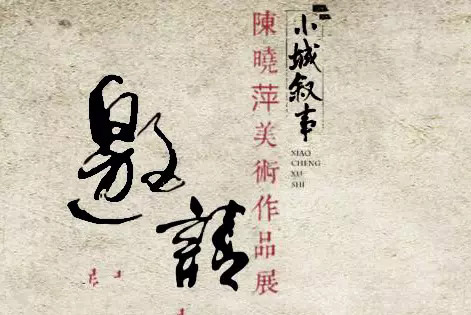 小城叙事
XIAO
CHENG
XU
SHI
陳曉萍美術作品展
邀請